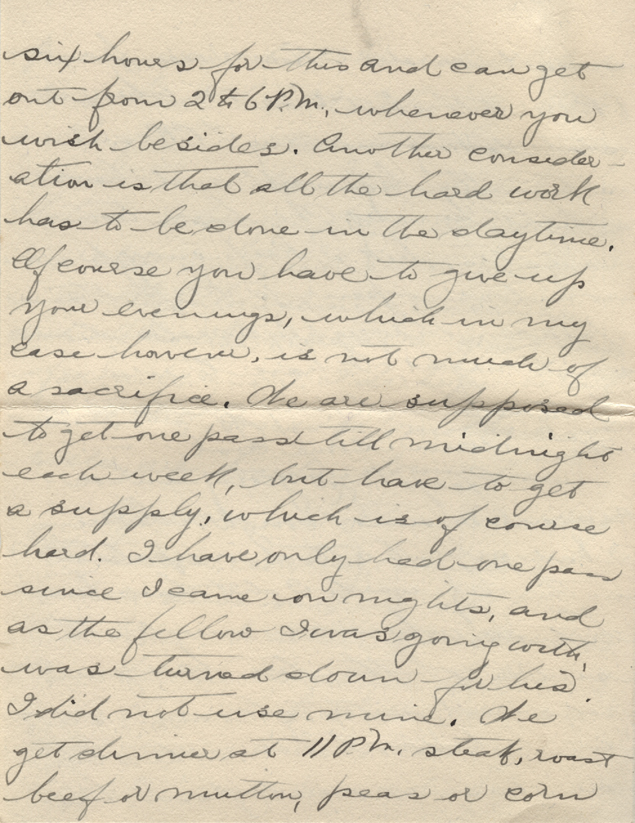 six hours for this and can get
out from 2 to 6 P.M., whenever you
wish besides. Another consider-
ation is that all the hard work
has to be done in the daytime.
Of course you have to give up
your evenings, which in my
case however, is not much of
a sacrifice. We are supposed
to get one pass till midnight
each week, but have to get
a supply, which is of course
hard. I have only had one pass
since I came on nights, and
as the fellow I was going with,
was turned down for his.
I did not use mine. We
get dinner at 11 P.M. steak, roast
beef or mutton, peas or corn